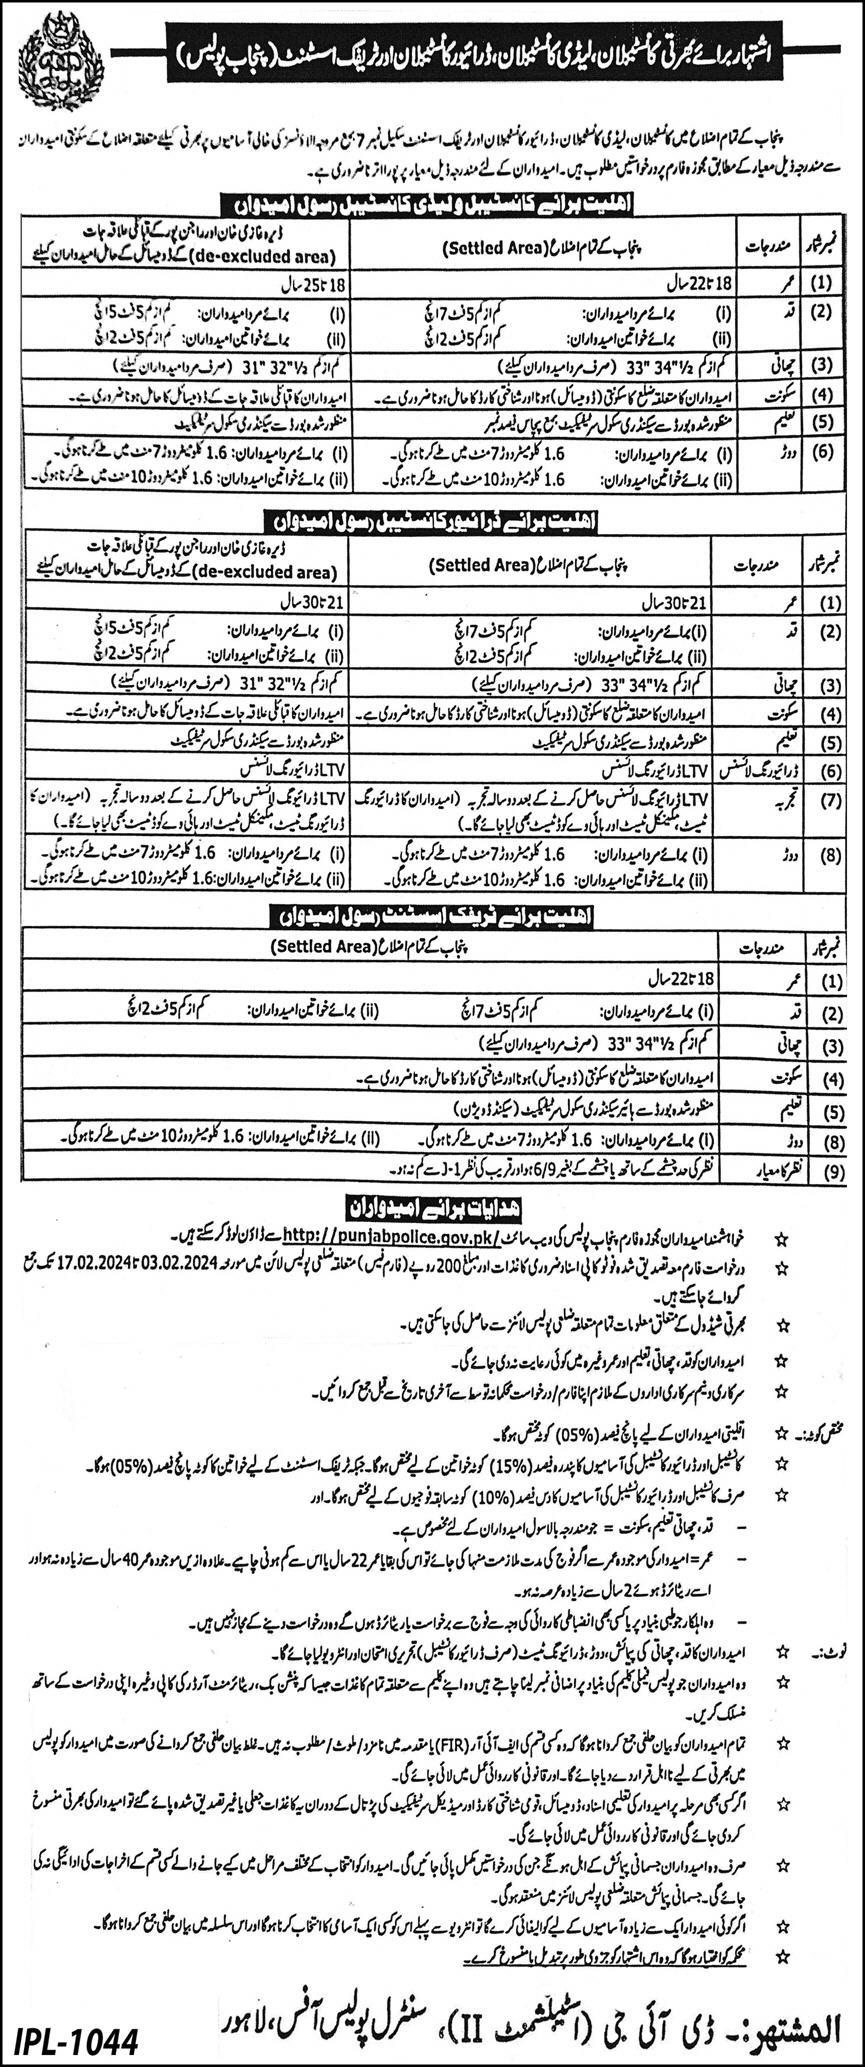 اشتہار برائے بھرتی کانسٹیبلان، لیڈی کانسٹیبلان، ڈرائیور کانسٹیبلان اور ٹریفک اسسٹنٹ (پنجاب پولیس)
پنجاب کے تمام اضلاع میں کانسٹیبلان، لیڈی کانسٹیبلان، ڈرائیور کانسٹیبلان اور ٹریفک اسسٹنٹ سکیل نمبر 7 بمع مروجہ الاؤنسز کی خالی آسامیوں پر بھرتی کیلئے متعلقہ اضلاع کے سکونتی امیدواران
سے مندرجہ ذیل معیار کے مطابق مجوزہ فارم پر درخواستیں مطلوب ہیں۔ امیدواران کے لئے مندرجہ ذیل معیار پر پورا اترنا ضروری ہے۔
اہلیت برائے کانسٹیبل و لیڈی کانسٹیبل (سول امیدوار)
نمبر شمار مندرجات پنجاب کے تمام اضلاع (Settled Area) ڈیرہ غازی خان اور راجن پور کے قبائلی علاقہ جات
(de-excluded area) کے ڈومیسائل کے حامل امیدواران کیلئے
(1) عمر 18 تا 22 سال 18 تا 25 سال
(2) قد (i) برائے مرد امیدواران: کم از کم 5 فٹ 7 انچ (i) برائے مرد امیدواران: کم از کم 5 فٹ 5 انچ
(ii) برائے خواتین امیدواران: کم از کم 5 فٹ 2 انچ (ii) برائے خواتین امیدواران: کم از کم 5 فٹ 2 انچ
(3) چھاتی کم از کم 33" 34½" (صرف مرد امیدواران کیلئے) کم از کم 31" 32½" (صرف مرد امیدواران کیلئے)
(4) سکونت امیدواران کا متعلقہ ضلع کا سکونتی (ڈومیسائل) ہونا اور شناختی کارڈ کا حامل ہونا ضروری ہے۔ امیدواران کا قبائلی علاقہ جات کے ڈومیسائل کا حامل ہونا ضروری ہے۔
(5) تعلیم منظور شدہ بورڈ سے سیکنڈری سکول سرٹیفکیٹ بمع پچاس فیصد نمبر منظور شدہ بورڈ سے سیکنڈری سکول سرٹیفکیٹ
(6) دوڑ (i) برائے مرد امیدواران: 1.6 کلومیٹر دوڑ 7 منٹ میں طے کرنا ہوگی۔ (i) برائے مرد امیدواران: 1.6 کلومیٹر دوڑ 7 منٹ میں طے کرنا ہوگی۔
(ii) برائے خواتین امیدواران: 1.6 کلومیٹر دوڑ 10 منٹ میں طے کرنا ہوگی۔ (ii) برائے خواتین امیدواران: 1.6 کلومیٹر دوڑ 10 منٹ میں طے کرنا ہوگی۔
اہلیت برائے ڈرائیور کانسٹیبل (سول امیدوار)
نمبر شمار مندرجات پنجاب کے تمام اضلاع (Settled Area) ڈیرہ غازی خان اور راجن پور کے قبائلی علاقہ جات
(de-excluded area) کے ڈومیسائل کے حامل امیدواران کیلئے
(1) عمر 21 تا 30 سال 21 تا 30 سال
(2) قد (i) برائے مرد امیدواران: کم از کم 5 فٹ 7 انچ (i) برائے مرد امیدواران: کم از کم 5 فٹ 5 انچ
(ii) برائے خواتین امیدواران: کم از کم 5 فٹ 2 انچ (ii) برائے خواتین امیدواران: کم از کم 5 فٹ 2 انچ
(3) چھاتی کم از کم 33" 34½" (صرف مرد امیدواران کیلئے) کم از کم 31" 32½" (صرف مرد امیدواران کیلئے)
(4) سکونت امیدواران کا متعلقہ ضلع کا سکونتی (ڈومیسائل) ہونا اور شناختی کارڈ کا حامل ہونا ضروری ہے۔ امیدواران کا قبائلی علاقہ جات کے ڈومیسائل کا حامل ہونا ضروری ہے۔
(5) تعلیم منظور شدہ بورڈ سے سیکنڈری سکول سرٹیفکیٹ منظور شدہ بورڈ سے سیکنڈری سکول سرٹیفکیٹ
(6) ڈرائیورنگ لائسنس LTV ڈرائیورنگ لائسنس LTV ڈرائیورنگ لائسنس
(7) تجربہ LTV ڈرائیورنگ لائسنس حاصل کرنے کے بعد دو سالہ تجربہ (امیدواران کا ڈرائیورنگ LTV ڈرائیورنگ لائسنس حاصل کرنے کے بعد دو سالہ تجربہ (امیدواران کا
ٹیسٹ، مکینیکل ٹیسٹ اور ہائی وے کوڈ ٹیسٹ بھی لیا جائے گا۔) ڈرائیورنگ ٹیسٹ، مکینیکل ٹیسٹ اور ہائی وے کوڈ ٹیسٹ بھی لیا جائے گا۔)
(8) دوڑ (i) برائے مرد امیدواران: 1.6 کلومیٹر دوڑ 7 منٹ میں طے کرنا ہوگی۔ (i) برائے مرد امیدواران: 1.6 کلومیٹر دوڑ 7 منٹ میں طے کرنا ہوگی۔
(ii) برائے خواتین امیدواران: 1.6 کلومیٹر دوڑ 10 منٹ میں طے کرنا ہوگی۔ (ii) برائے خواتین امیدواران: 1.6 کلومیٹر دوڑ 10 منٹ میں طے کرنا ہوگی۔
اہلیت برائے ٹریفک اسسٹنٹ (سول امیدوار)
نمبر شمار مندرجات پنجاب کے تمام اضلاع (Settled Area)
(1) عمر 18 تا 22 سال
(2) قد (i) برائے مرد امیدواران: کم از کم 5 فٹ 7 انچ (ii) برائے خواتین امیدواران: کم از کم 5 فٹ 2 انچ
(3) چھاتی کم از کم 33" 34½" (صرف مرد امیدواران کیلئے)
(4) سکونت امیدواران کا متعلقہ ضلع کا سکونتی (ڈومیسائل) ہونا اور شناختی کارڈ کا حامل ہونا ضروری ہے۔
(5) تعلیم منظور شدہ بورڈ سے ہائیر سیکنڈری سکول سرٹیفکیٹ (سیکنڈ ڈویژن)
(8) دوڑ (i) برائے مرد امیدواران: 1.6 کلومیٹر دوڑ 7 منٹ میں طے کرنا ہوگی۔ (ii) برائے خواتین امیدواران: 1.6 کلومیٹر دوڑ 10 منٹ میں طے کرنا ہوگی۔
(9) نظر کا معیار نظر کی حد چشمے کے ساتھ یا چشمے کے بغیر 6/9 ہو اور قریب کی نظر J-1 سے کم نہ ہو۔
ہدایات برائے امیدواران
☆ خواہشمند امیدواران مجوزہ فارم پنجاب پولیس کی ویب سائٹ http://punjabpolice.gov.pk/ سے ڈاؤن لوڈ کر سکتے ہیں۔
☆ درخواست فارم معہ تصدیق شدہ فوٹو کاپی اسناد ضروری کاغذات اور مبلغ 200 روپے (فارم فیس) متعلقہ ضلعی پولیس لائن میں مورخہ 03.02.2024 تا 17.02.2024 تک جمع
کروائے جا سکتے ہیں۔
☆ بھرتی شیڈول کے متعلق معلومات تمام متعلقہ ضلعی پولیس لائنز سے حاصل کی جا سکتی ہیں۔
☆ امیدواران کو قد، چھاتی، تعلیم اور عمر وغیرہ میں کوئی رعایت نہ دی جائے گی۔
☆ سرکاری و نیم سرکاری اداروں کے ملازم اپنا فارم/درخواست محکمانہ توسط سے آخری تاریخ سے قبل جمع کروائیں۔
مختص کوٹہ:۔ ☆ اقلیتی امیدواران کے لیے پانچ فیصد (05%) کوٹہ مختص ہوگا۔
☆ کانسٹیبل اور ڈرائیور کانسٹیبل کی آسامیوں کا پندرہ فیصد (15%) کوٹہ خواتین کے لیے مختص ہوگا۔ جبکہ ٹریفک اسسٹنٹ کے لیے خواتین کا کوٹہ پانچ فیصد (05%) ہوگا۔
☆ صرف کانسٹیبل اور ڈرائیور کانسٹیبل کی آسامیوں کا دس فیصد (10%) کوٹہ سابقہ فوجیوں کے لیے مختص ہوگا۔ اور
- قد، چھاتی، تعلیم، سکونت = جو مندرجہ بالا سول امیدواران کے لئے مخصوص ہے۔
- عمر = امیدوار کی موجودہ عمر سے اگر فوج کی مدت ملازمت منہا کی جائے تو اس کی بقایا عمر 22 سال یا اس سے کم ہونی چاہیے۔ علاوہ ازیں موجودہ عمر 40 سال سے زیادہ نہ ہو اور
اسے ریٹائرڈ ہوئے 2 سال سے زیادہ عرصہ نہ ہو۔
- وہ اہلکار جو طبی بنیاد پر یا کسی بھی انضباطی کاروائی کی وجہ سے فوج سے برخواست یا ریٹائرڈ ہوں گے وہ درخواست دینے کے مجاز نہیں ہیں۔
نوٹ:۔ ☆ امیدواران کا قد، چھاتی کی پیمائش، دوڑ، ڈرائیونگ ٹیسٹ (صرف ڈرائیور کانسٹیبل) تحریری امتحان اور انٹرویو لیا جائے گا۔
☆ وہ امیدواران جو پولیس فیملی کلیم کی بنیاد پر اضافی نمبر لینا چاہتے ہیں وہ اپنے کلیم سے متعلقہ تمام کاغذات جیسا کہ پنشن بک، ریٹائرمنٹ آرڈر کی کاپی وغیرہ اپنی درخواست کے ساتھ
منسلک کریں۔
☆ تمام امیدواران کو بیان حلفی جمع کروانا ہوگا کہ وہ کسی قسم کی ایف آئی آر (FIR) یا مقدمہ میں نامزد/ملوث/مطلوب نہ ہیں۔ غلط بیان حلفی جمع کروانے کی صورت میں امیدوار کو پولیس
میں بھرتی کے لیے نااہل قرار دے دیا جائے گا۔ اور قانونی کارروائی عمل میں لائی جائے گی۔
☆ اگر کسی بھی مرحلہ پر امیدوار کی تعلیمی اسناد، ڈومیسائل، قومی شناختی کارڈ اور میڈیکل سرٹیفکیٹ کی پڑتال کے دوران یہ کاغذات جعلی یا غیر تصدیق شدہ پائے گئے تو امیدوار کی بھرتی منسوخ
کر دی جائے گی اور قانونی کارروائی عمل میں لائی جائے گی۔
☆ صرف وہ امیدواران جسمانی پیمائش کے اہل ہونگے جن کی درخواستیں مکمل پائی جائیں گی۔ امیدوار کو انتخاب کے مختلف مراحل میں کیے جانے والے کسی قسم کے اخراجات کی ادائیگی نہ کی
جائے گی۔ جسمانی پیمائش متعلقہ ضلعی پولیس لائنز میں منعقد ہوگی۔
☆ اگر کوئی امیدوار ایک سے زیادہ آسامیوں کے لیے کوالیفائی کرے گا تو انٹرویو سے پہلے اس کو کسی ایک آسامی کا انتخاب کرنا ہوگا اور اس سلسلہ میں بیان حلفی جمع کروانا ہوگا۔
☆ محکمہ کو اختیار ہوگا کہ وہ اس اشتہار کو جزوی طور پر تبدیل یا منسوخ کرے۔
المشتہر:۔ ڈی آئی جی (اسٹیبلشمنٹ II)، سنٹرل پولیس آفس، لاہور
IPL-1044